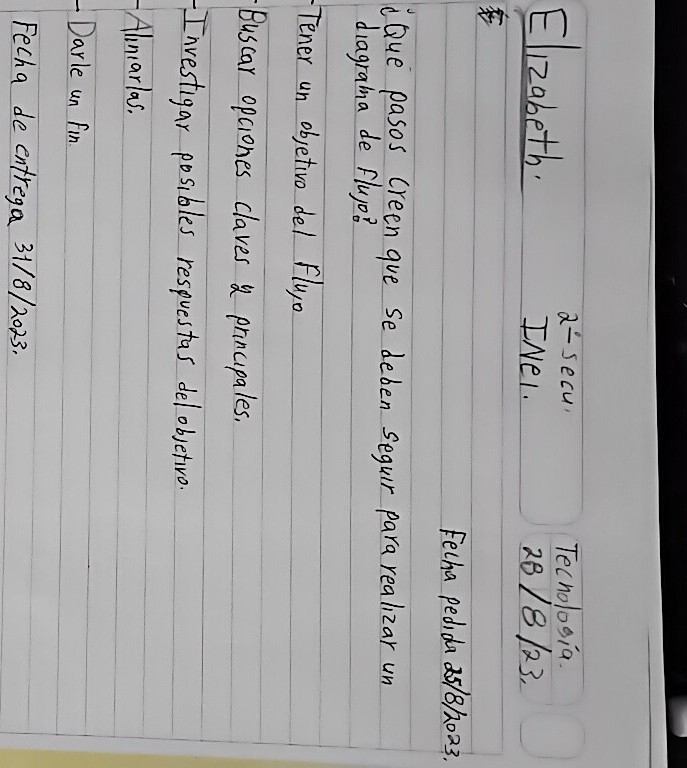 2º-secu.
Tecnología.
Elizabeth.
INEI.
28/8/23.
Fecha pedida 25/8/2023.
¿Qué pasos creen que se deben seguir para realizar un
diagrama de flujo?
- Tener un objetivo del flujo
- Buscar opciones claves y principales.
- Investigar posibles respuestas del objetivo.
- Aliniarlas.
- Darle un fin.
Fecha de entrega 31/8/2023.